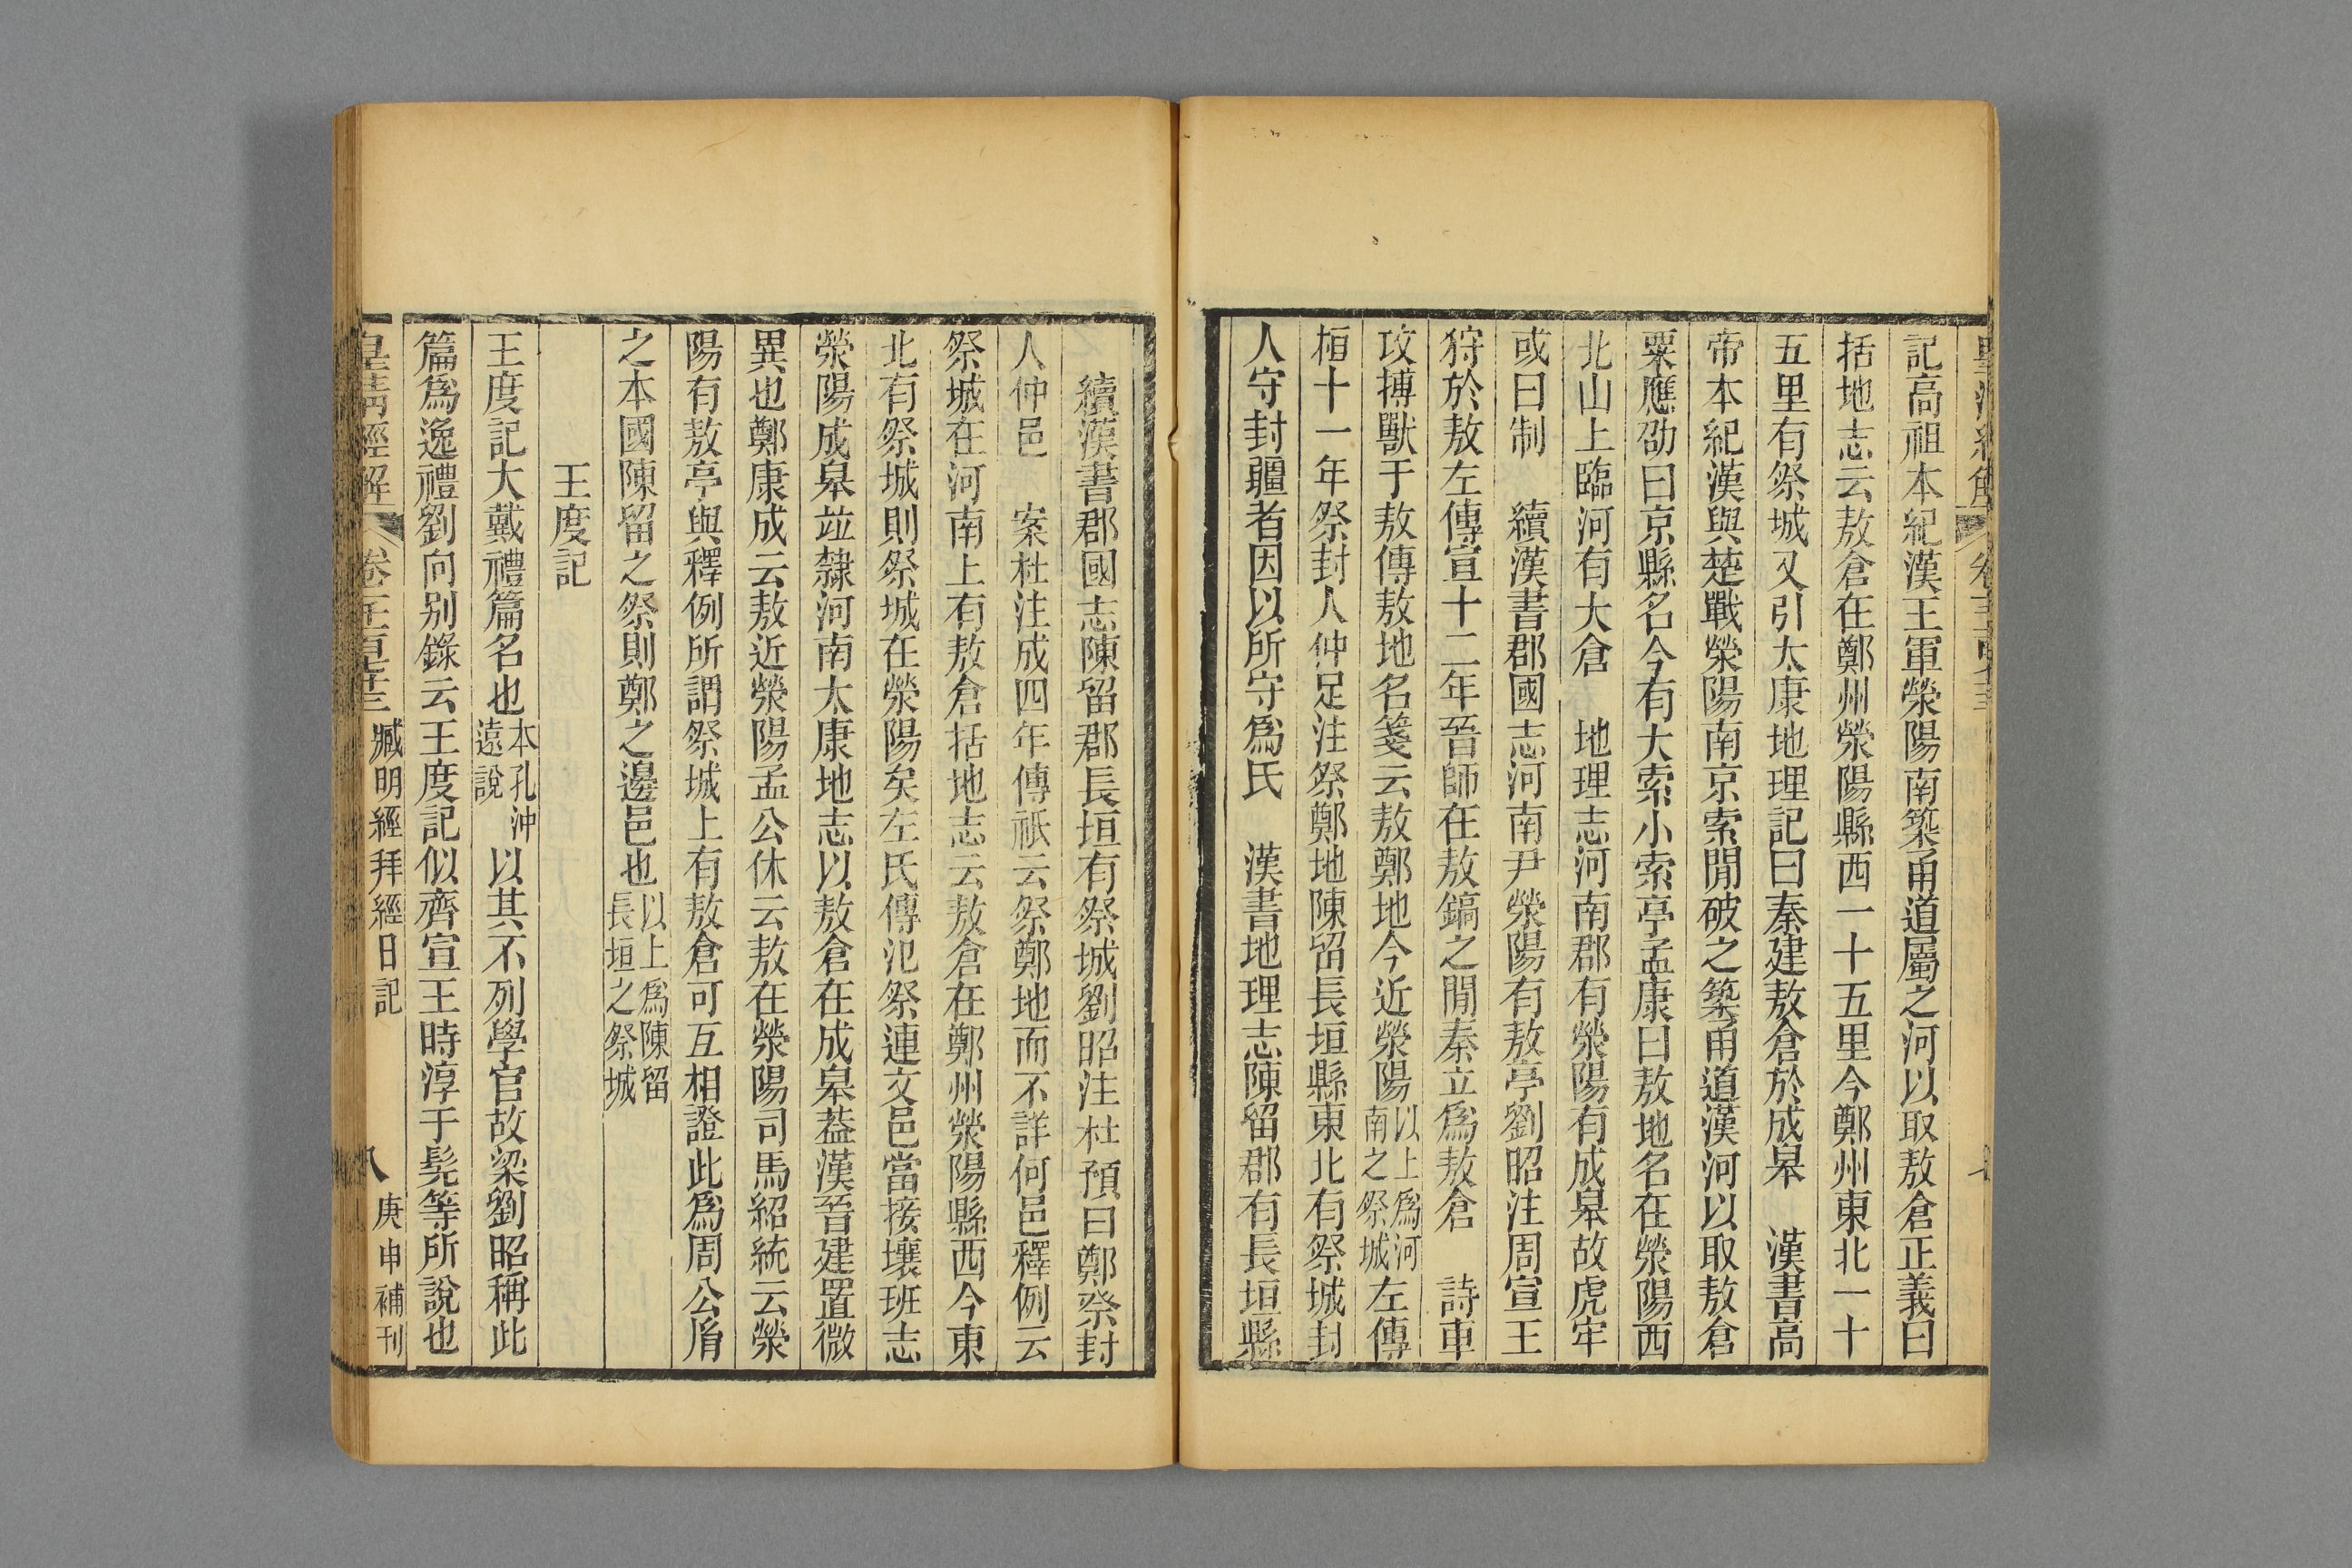 記高祖本紀漢王軍滎陽南築甬道屬之河以取敖倉正義曰
括地志云敖倉在鄭州滎陽縣西一十五里今鄭州東北一十
五里有祭城又引太康地理記曰秦建敖倉於成皋　漢書高
帝本紀漢與楚戰滎陽南京索閒破之築甬道漢河以取敖倉
粟應劭曰京縣名今有大索小索亭孟康曰敖地名在滎陽西
北山上臨河有大倉　地理志河南郡有滎陽有成皋故虎牢
或曰制　續漢書郡國志河南尹滎陽有敖亭劉昭注周宣王
狩於敖左傳宣十二年晉師在敖鎬之閒秦立爲敖倉　詩車
攻搏獸于敖傳敖地名箋云敖鄭地今近滎陽以上爲河南之祭城左傳
桓十一年祭封人仲足注祭鄭地陳留長垣縣東北有祭城封
人守封疆者因以所守爲氏　漢書地理志陳留郡有長垣縣
續漢書郡國志陳留郡長垣有祭城劉昭注杜預曰鄭祭封
人仲邑　案杜注成四年傳祇云祭鄭地而不詳何邑釋例云
祭城在河南上有敖倉括地志云敖倉在鄭州滎陽縣西今東
北有祭城則祭城在滎陽矣左氏傳氾祭連文邑當接壤班志
滎陽成皋竝隸河南太康地志以敖倉在成皋葢漢晉建置微
異也鄭康成云敖近滎陽孟公休云敖在滎陽司馬紹統云滎
陽有敖亭與釋例所謂祭城上有敖倉可互相證此爲周公𦙍
之本國陳留之祭則鄭之邊邑也以上爲陳留長垣之祭城
王度記
王度記大戴禮篇名也本孔沖遠說以其不列學官故梁劉昭稱此
篇爲逸禮劉向别錄云王度記似齊宣王時淳于髡等所說也
皇清經解　卷　臧明經拜經日記　八　庚申補刊